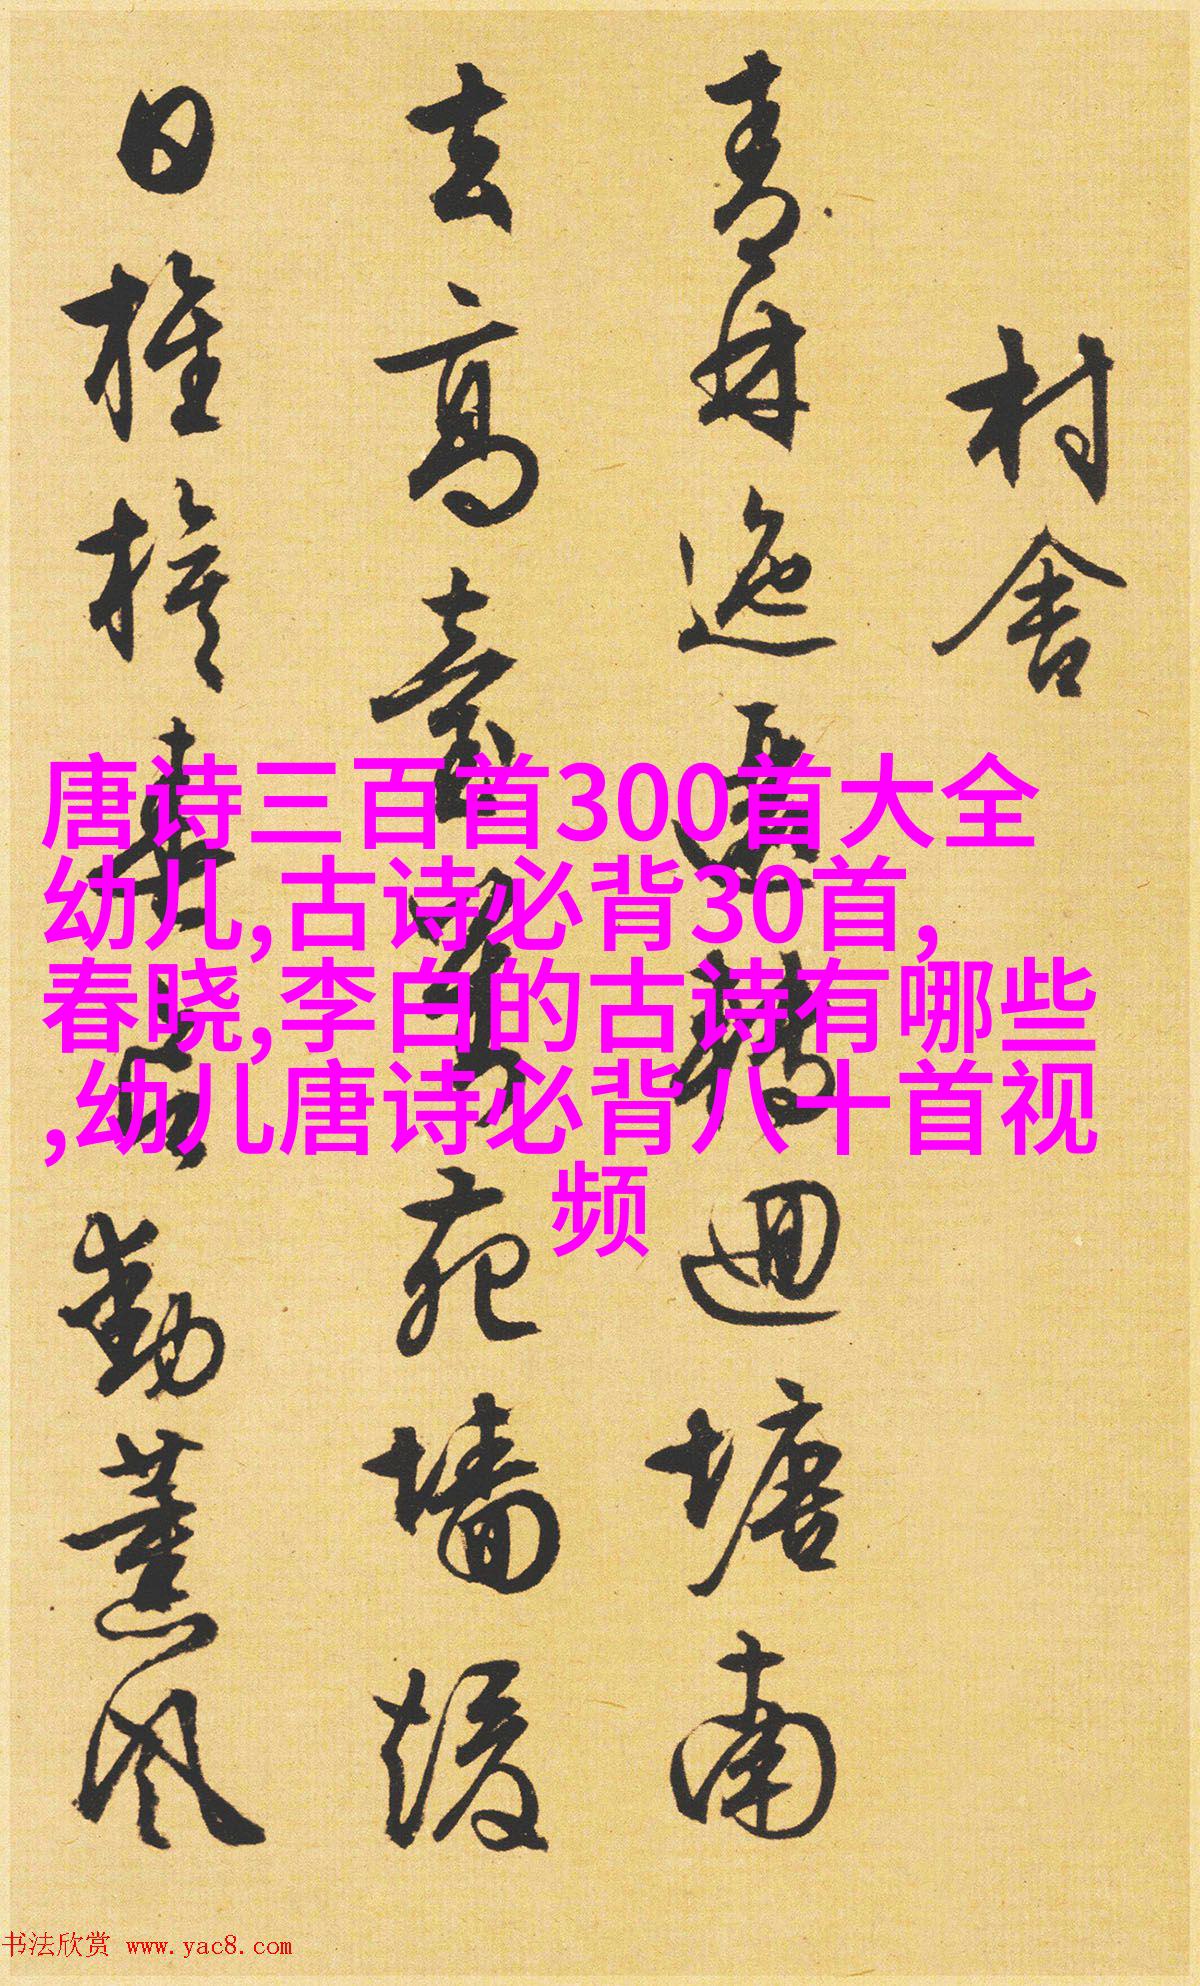 村舍
青林迤轉迴塘南
去高臺苑墙煖
日薰风
唐诗三百首300首大全
幼儿,古诗必背30首,
春晓,李白的古诗有哪些
,幼儿唐诗必背八十首视
频
书法欣赏 www.yac8.com